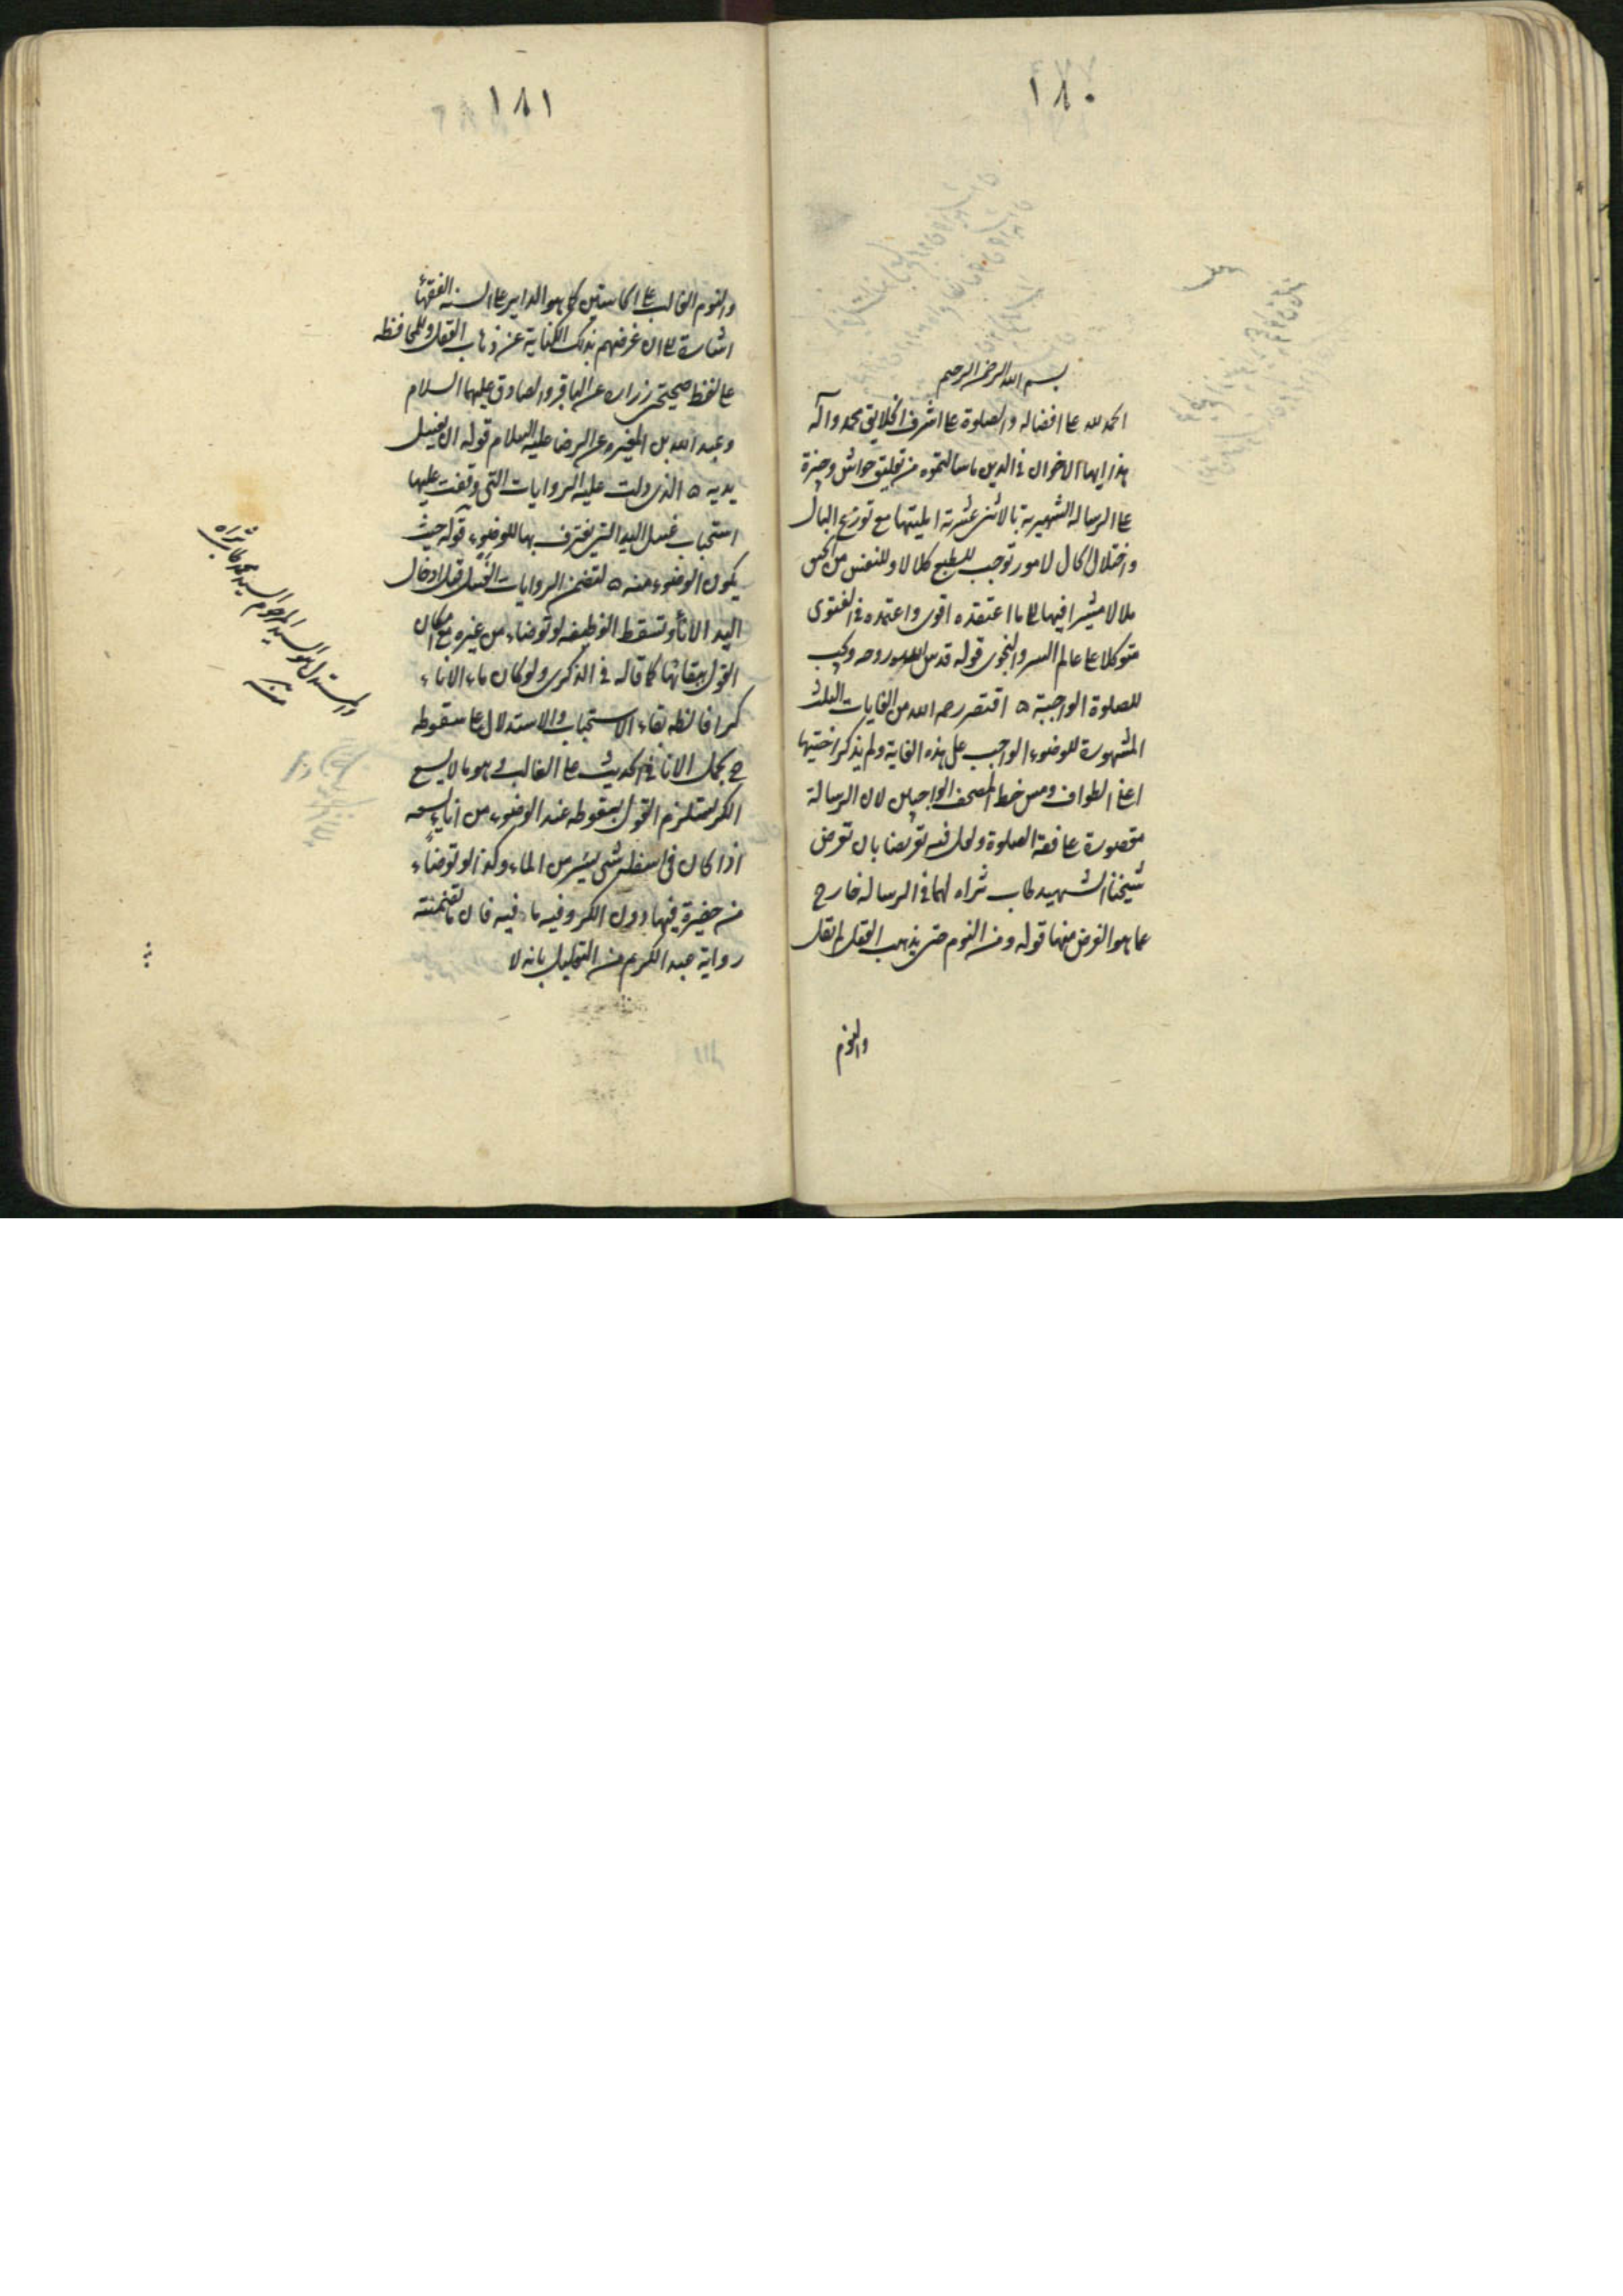 ١٨٠
بسم الله الرحمن الرحيم
الحمد لله على افضاله والصلوة على اشرف الخلايق محمد وآله
هذا ايها الاخوان في الدين ما سالتموه من تعليق حواش وجيزة
على الرسالة الشهيرة بالاثنى عشرية امليتها مع توزع البال
واختلال الحال لامور توجب للطبع كلالا وللنفس من الحس
ملالا مشيرا فيها الى ما اعتقده اقوى واعتمده في الفتوى
متوكلا على عالم السر والنجوى قوله قدس الله روحه وتجب
للصلوة الواجبة ه اقتصر رحمه الله من الغايات الثلث
المشهورة للوضوء الواجب على هذه الغاية ولم يذكر اختيها
اعني الطواف ومس خط المصحف الواجبين لان الرسالة
مقصورة على فقه الصلوة ولعل فيه تعريضا بان تعرض
شيخنا الشهيد طاب ثراه لهما في الرسالة خارج
عما هو الغرض منها قوله ومن النوم حتى يذهب العقل لم يقل
والنوم
١٨١
والنوم الغالب على الحاستين كما هو الداير على السنة الفقهاء
اشارة الى ان غرضهم بذلك الكناية عن ذهاب العقل وللمحافظه
على لفظ صحيحتى زرارة عن الباقر والصادق عليهما السلام
وعبد الله بن المغيره عن الرضا عليه السلام قوله ان يغسل
يديه ه الذى دلت عليه الروايات التى وقفت عليها
استحباب غسل اليد التى يغترف بها للوضوء قوله حيث
يكون الوضوء منه ه لتضمن الروايات الغسل قبل ادخال
اليد الاناء وتسقط الوظيفه لو توضاء من غيره مع امكان
القول ببقائها كما قاله في الذكرى ولو كان ماء الاناء
كرا فالظ بقاء الاستحباب والاستدلال على سقوطه
ح بحمل الاناء في الحديث على الغالب وهو ما لا يسع
الكر يستلزم القول بسقوطه عند الوضوء من اناء يسعه
اذا كان في اسفله شى يسير من الماء وكذا لو توضاء
من حفيرة فيها دون الكر وفيه ما فيه فان ما تضمنته
رواية عبد الكريم من التعليل بانه لا
والمستدل هو السيد المرحوم السيد محمد طاب ثراه
منه